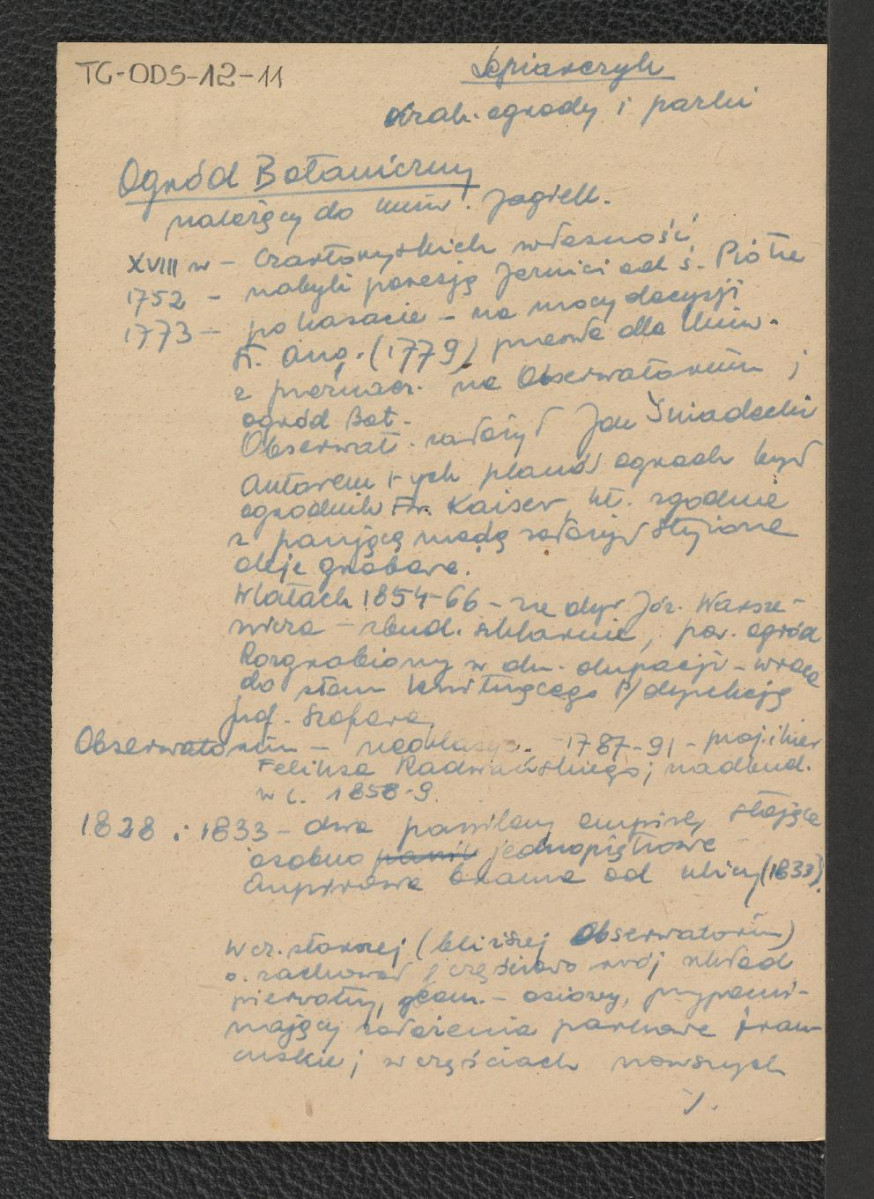 TG-ODS-12-11
Lepiarczyk
krak. ogrody i parki
Ogród Botaniczny
należący do Uniw. Jagiell.
XVIII w - Czartoryskich własność
1752 - nabyli posesję Jezuici od ś. Piotra
1773 - po kasacie - na mocy decyzji
St. Aug. (1779) prawa dla Uniw.
z przeznacz. na Obserwatorium i
ogród Bot.
Obserwat. założył Jan Śniadecki
Autorem 1-ych planów ogrodu był
ogrodnik Fr. Kaiser, kt. zgodnie
z panującą modą założył strzyżone
aleje grabowe.
W latach 1854-66 - za dyr Józ. Warsze-
wicza - zbud. szklarnie, pow. ogród
Rozgrabiony w dn. okupacji - wraca
do stanu kwitnącego p/dyrekcją
prof. Szafera
Obserwatorium - neoklasyc. - 1787-91 - proj. i kier
Feliksa Radwańskiego; nadbud.
w l. 1858-9.
1828 i 1833 - dwa pawilony empirey stojące
osobno pawil jednopiętrowe
Empirowa brama od ulicy (1833).
W cz. starszej (bliższej Obserwatorium)
o. zachował częściowo swój układ
pierwotny, geom. - osiowy, przypomi-
nający założenia parkowe fran-
cuskie; w częściach nowszych